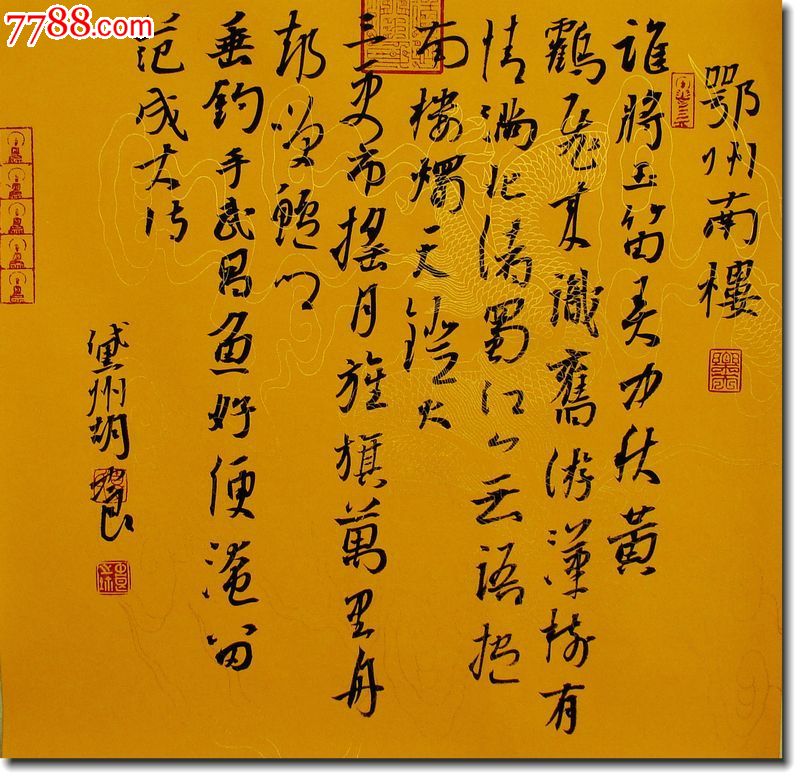 7788.com
鄂州南樓
誰將玉笛弄中秋黄
鶴飛來識舊游漢樹有
情滿北渚蜀江無語抱
南樓燭天燈火
三更市摇月旌旗萬里舟
却笑鱸鄉
垂釣手武昌魚好便淹留
范成大詩
州胡良